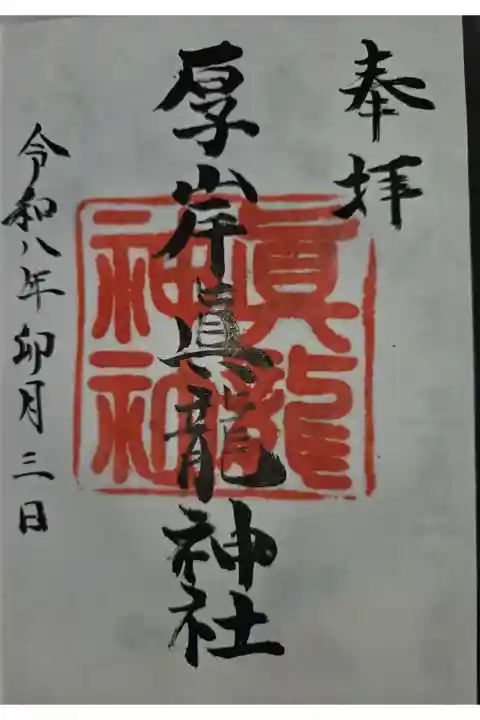 奉拝
厚岸真龍神社
眞龍
神社
令和八年卯月三日